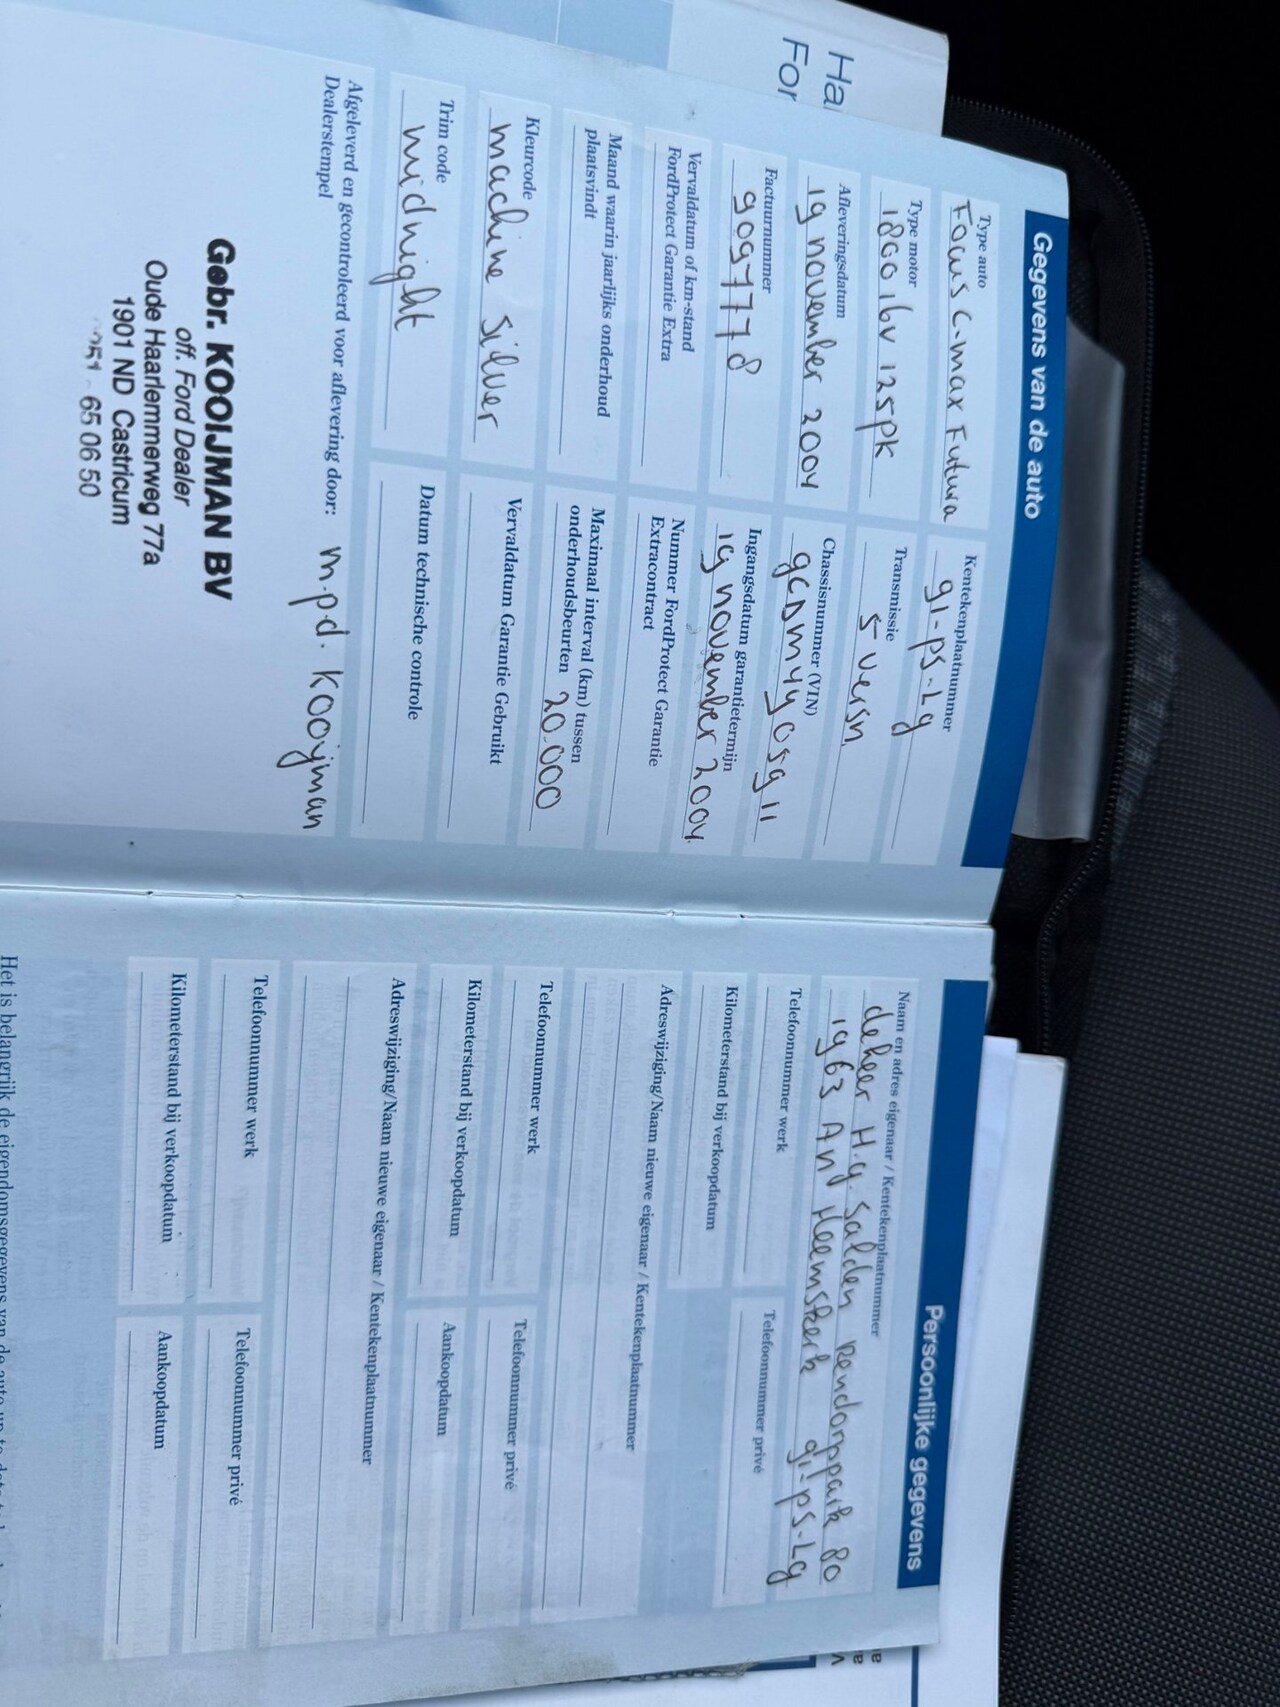 Ha
For
Gegevens van de auto
Type auto
Focus C-max Futura
Kentekenplaatnummer
91-ps-Lg
Type motor
1800 16v 125pk
Transmissie
5 versn.
Afleveringsdatum
19 november 2004
Chassisnummer (VIN)
gcDm4y05911
Factuurnummer
9097778
Ingangsdatum garantietermijn
19 november 2004
Vervaldatum of km-stand
FordProtect Garantie Extra
Nummer FordProtect Garantie
Extracontract
Maand waarin jaarlijks onderhoud
plaatsvindt
Maximaal interval (km) tussen
onderhoudsbeurten 20.000
Kleurcode
machine Silver
Vervaldatum Garantie Gebruikt
Trim code
midnight
Datum technische controle
Afgeleverd en gecontroleerd voor aflevering door: m.p.d. Kooijman
Dealerstempel
Gebr. KOOIJMAN BV
off. Ford Dealer
Oude Haarlemmerweg 77a
1901 ND Castricum
0251 - 65 06 50
Persoonlijke gegevens
Naam en adres eigenaar / Kentekenplaatnummer
de heer H.g. Salden Rendorppark 80
1963 An Heemskerk 91-ps-Lg
Telefoonnummer werk
Telefoonnummer privé
Kilometerstand bij verkoopdatum
Adreswijziging/Naam nieuwe eigenaar / Kentekenplaatnummer
Telefoonnummer werk
Telefoonnummer privé
Kilometerstand bij verkoopdatum
Aankoopdatum
Adreswijziging/Naam nieuwe eigenaar / Kentekenplaatnummer
Telefoonnummer werk
Telefoonnummer privé
Kilometerstand bij verkoopdatum
Aankoopdatum
Het is belangrijk de eigendomsgegevens van de auto up to date te